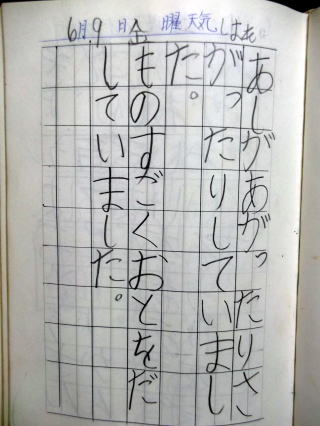 6月9日金曜天気しはれ
あしがあがったりさ
がったりしていまし
た。
ものすごくおとをだ
していました。